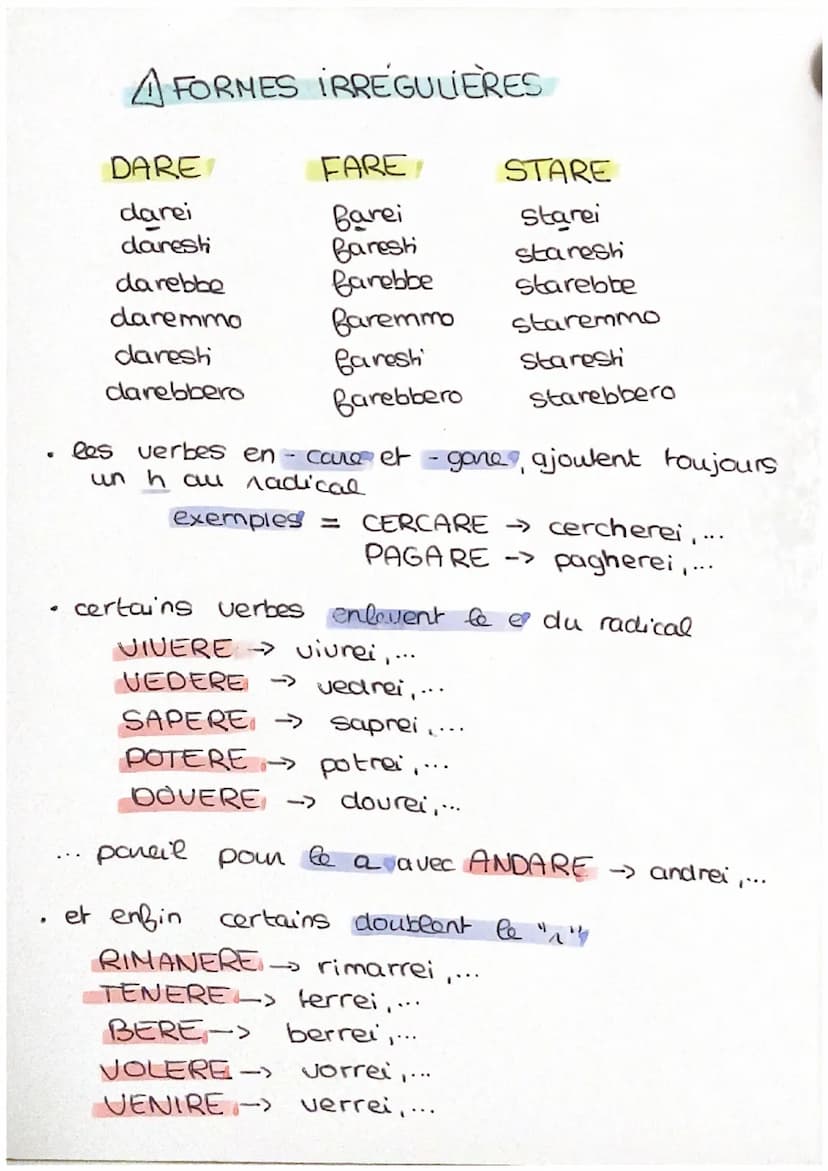 ⚠ FORMES IRRÉGULIÈRES
DARE FARE STARE
darei farei starei
daresti faresti staresti
darebbe farebbe starebbe
daremmo faremmo staremmo
daresti faresti staresti
darebbero farebbero starebbero
• les verbes en -care et -gare, ajoutent toujours
un h au radical
exemples = CERCARE → cercherei,...
PAGARE -> pagherei,...
• certains verbes enlèvent le e du radical
VIVERE → vivrei,...
VEDERE → vedrei,...
SAPERE → saprei,...
POTERE → potrei,...
DOVERE → dovrei,...
... pareil pour le a avec ANDARE → andrei,...
• et enfin certains doublent le "r"
RIMANERE → rimarrei,...
TENERE → terrei,...
BERE → berrei,...
VOLERE → vorrei,...
VENIRE → verrei,...